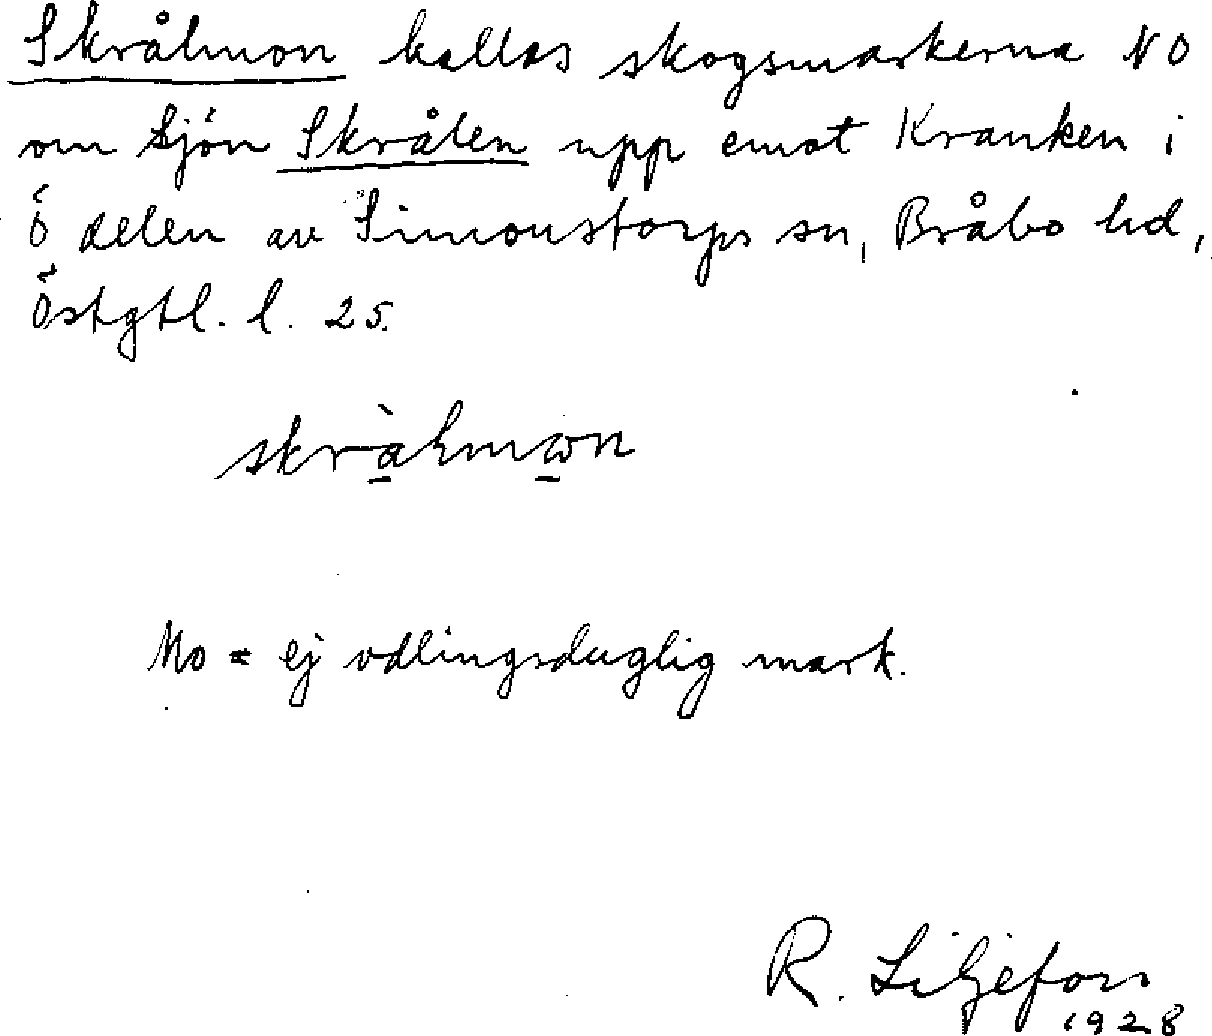 Skrålmon kallas skogsmarkerna NO
om sjön Skrålen upp emot Kranken i
Ö delen av Simonstorps sn, Bråbo hd,
Östgtl. l. 25.
Mo = ej odlingsduglig mark.
R. Liljefors
1928